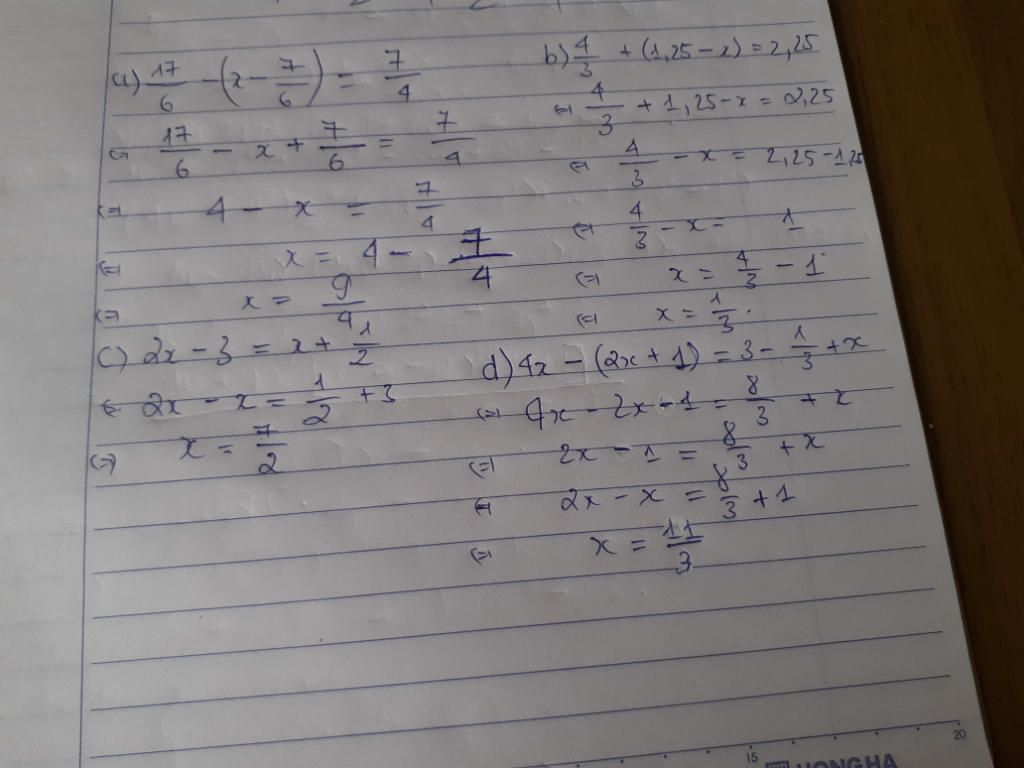 a) 17/6 - (x - 7/6) = 7/4
⇔ 17/6 - x + 7/6 = 7/4
⇔ 4 - x = 7/4
⇔ x = 4 - 7/4
⇔ x = 9/4
b) 4/3 + (1,25 - x) = 2,25
⇔ 4/3 + 1,25 - x = 2,25
⇔ 4/3 - x = 2,25 - 1,25
⇔ 4/3 - x = 1
⇔ x = 4/3 - 1
⇔ x = 1/3.
c) 2x - 3 = x + 1/2
⇔ 2x - x = 1/2 + 3
⇔ x = 7/2
d) 4x - (2x + 1) = 3 - 1/3 + x
⇔ 4x - 2x - 1 = 8/3 + x
⇔ 2x - 1 = 8/3 + x
⇔ 2x - x = 8/3 + 1
⇔ x = 11/3
15
20
HONGHA